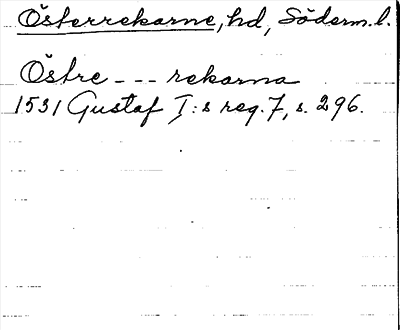 Österrekarne, hd, Söderm. l.
Östre - - - rekarna
1531 Gustaf I:s reg. 7, s. 296.